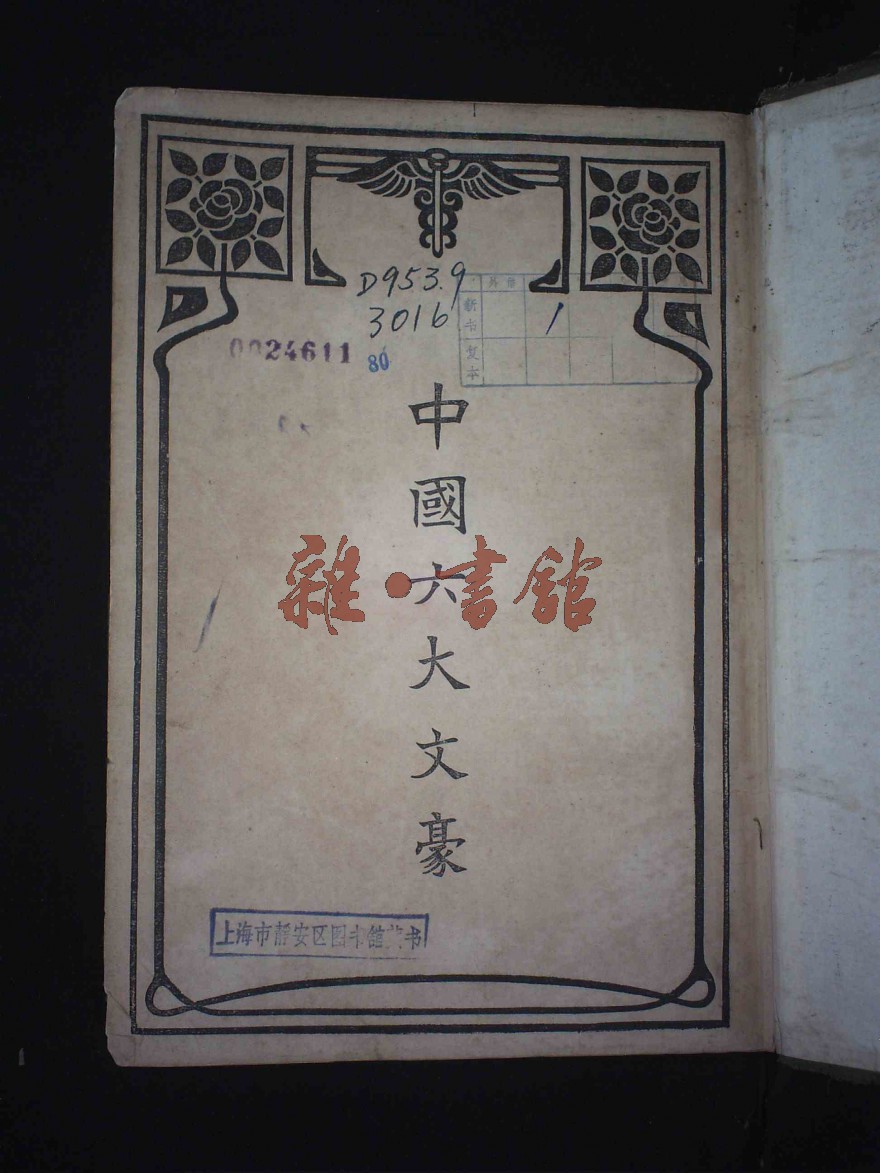 D953.9
3016
0024611
80
新书
复本
1
中國六大文豪
雜·書館
上海市靜安区图书馆藏书